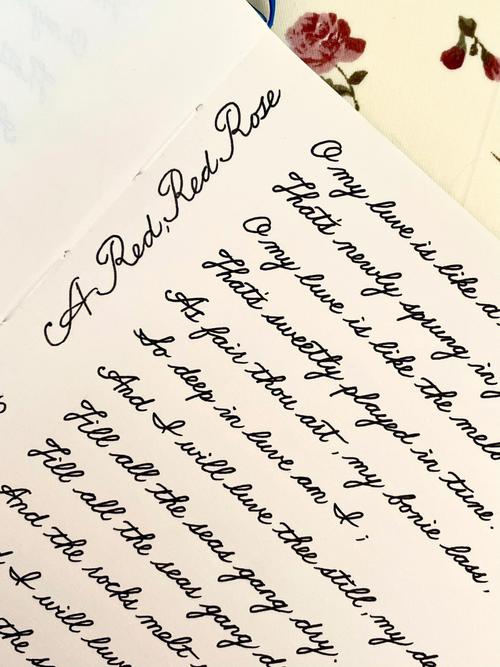 A Red, Red Rose
O my luve is like a
That's newly sprung in
O my luve is like the melo
That's sweetly played in tune.
As fair thou art, my bonie lass,
So deep in luve am I;
And I will luve thee still, my d
Till all the seas gang dry.
Till all the seas gang d
And the rocks melt
I will luve
the s